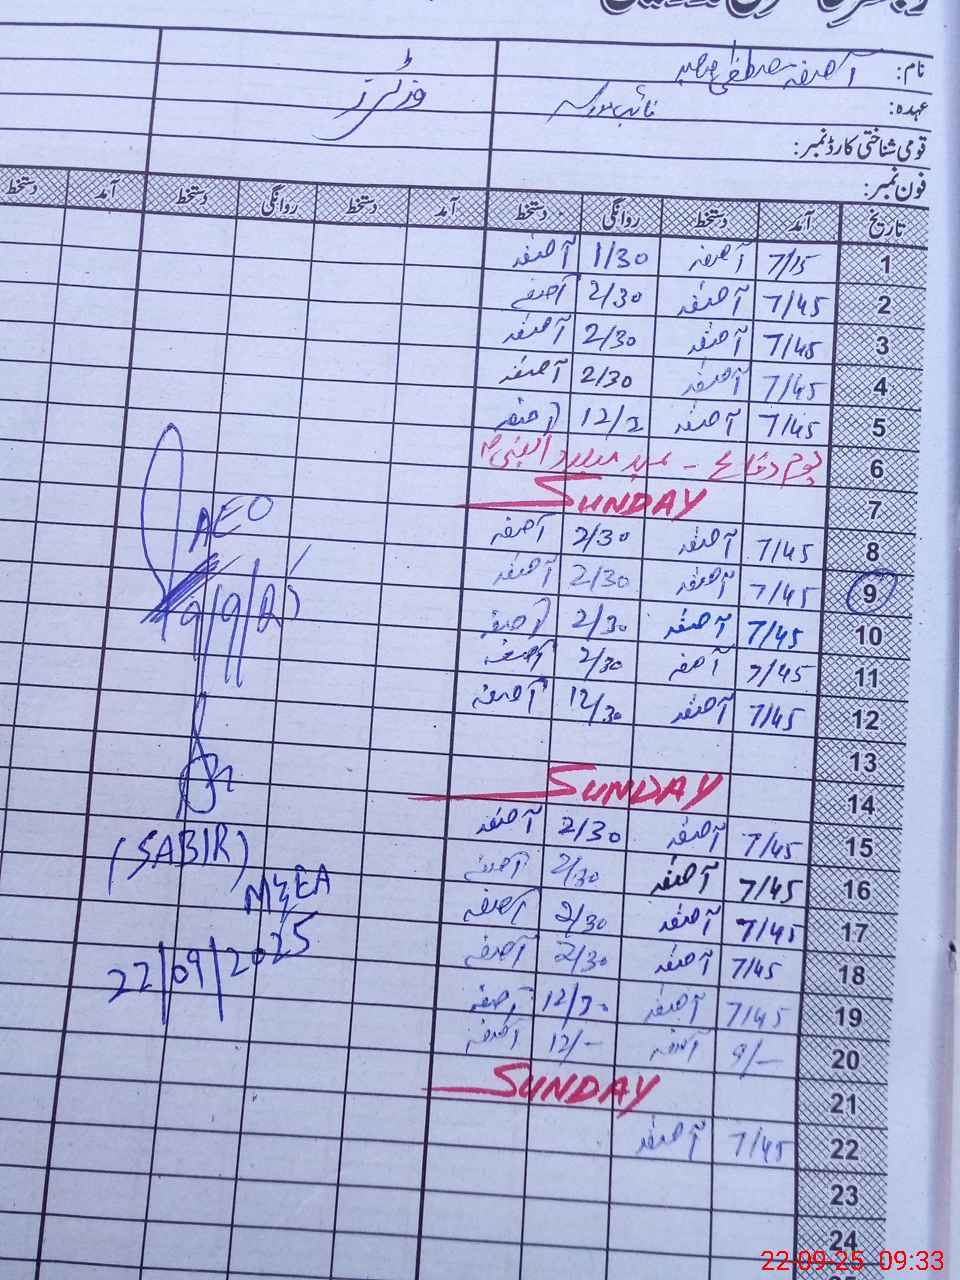 نام: آصفہ مصطفیٰ صاحبہ
عہدہ: نائب مدرسہ
وزیٹرز
قومی شناختی کارڈ نمبر:
فون نمبر:
تاریخ آمد دستخط روانگی دستخط آمد دستخط روانگی دستخط آمد دستخط
1 7/15 آصفہ 1/30 آصفہ
2 7/45 آصفہ 2/30 آصفہ
3 7/45 آصفہ 2/30 آصفہ
4 7/45 آصفہ 2/30 آصفہ
5 7/45 آصفہ آصفہ
6 یوم دفاع - عید میلاد النبی
7 SUNDAY
8 7/45 آصفہ 2/30 آصفہ
9 7/45 آصفہ 2/30 آصفہ
10 7/45 آصفہ 2/30 آصفہ
11 7/45 آصفہ 2/30 آصفہ
12 7/45 آصفہ 12/30 آصفہ
13
14 SUNDAY
15 7/45 آصفہ 2/30 آصفہ
16 7/45 آصفہ 2/30 آصفہ
17 7/45 آصفہ 2/30 آصفہ
18 7/45 آصفہ 2/30 آصفہ
19 7/45 آصفہ 12/30 آصفہ
20 9/- آصفہ 12/- آصفہ
21 SUNDAY
22 7/45 آصفہ
23
24
AEO
(SABIR)
M&EA
22/09/2025
22-09-25 09:33